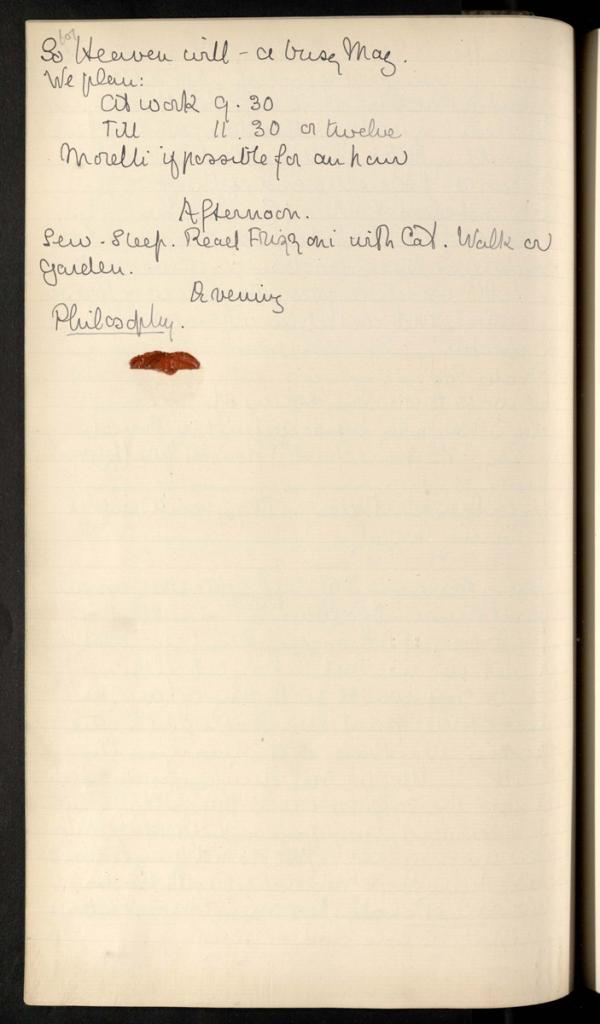 So Heaven will - a busy May.
We plan:
At work 9.30
Till 11.30 or twelve
Morelli if possible for an hour
Afternoon.
Sew - Sleep. Read Frizzoni with Cat. Walk or
garden.
Evening
Philosophy.